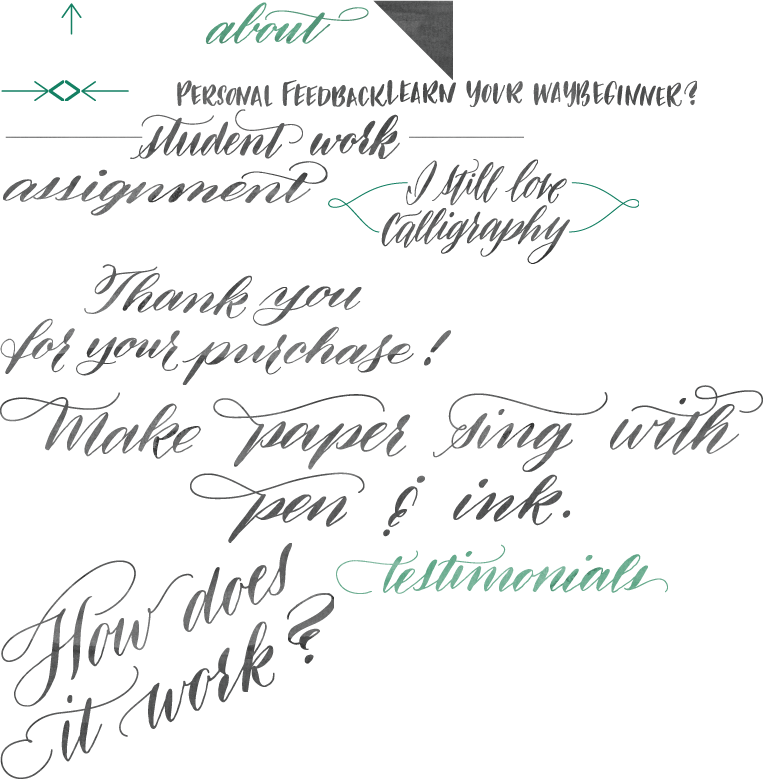 about
PERSONAL FEEDBACK LEARN YOUR WAY BEGINNER?
student work
assignment
I still love
Calligraphy
Thank you
for your purchase!
Make paper sing with
pen & ink.
testimonials
How does
it work?